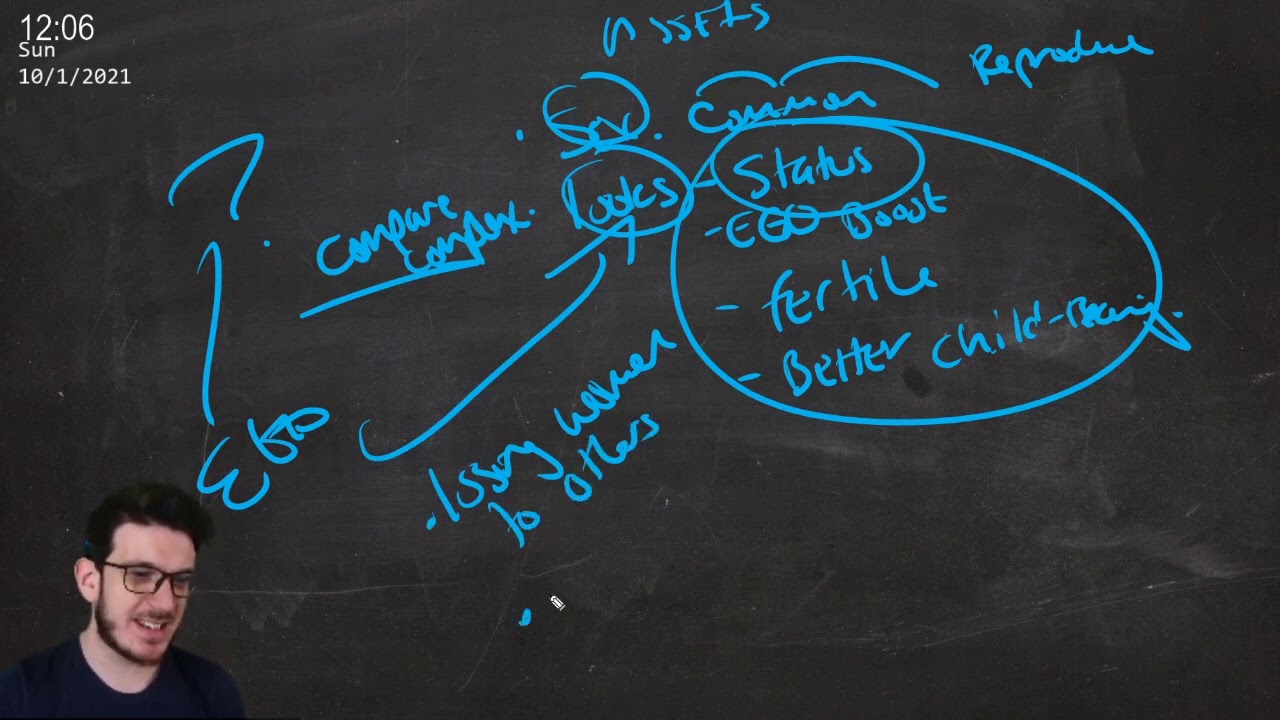 12:06
Sun
10/1/2021
ASSETS
Reproduce
Common
Looks
- Status
- EGO Boost
- fertile
- Better Child-Bearing.
Compare
EGO
. lossing women
to others